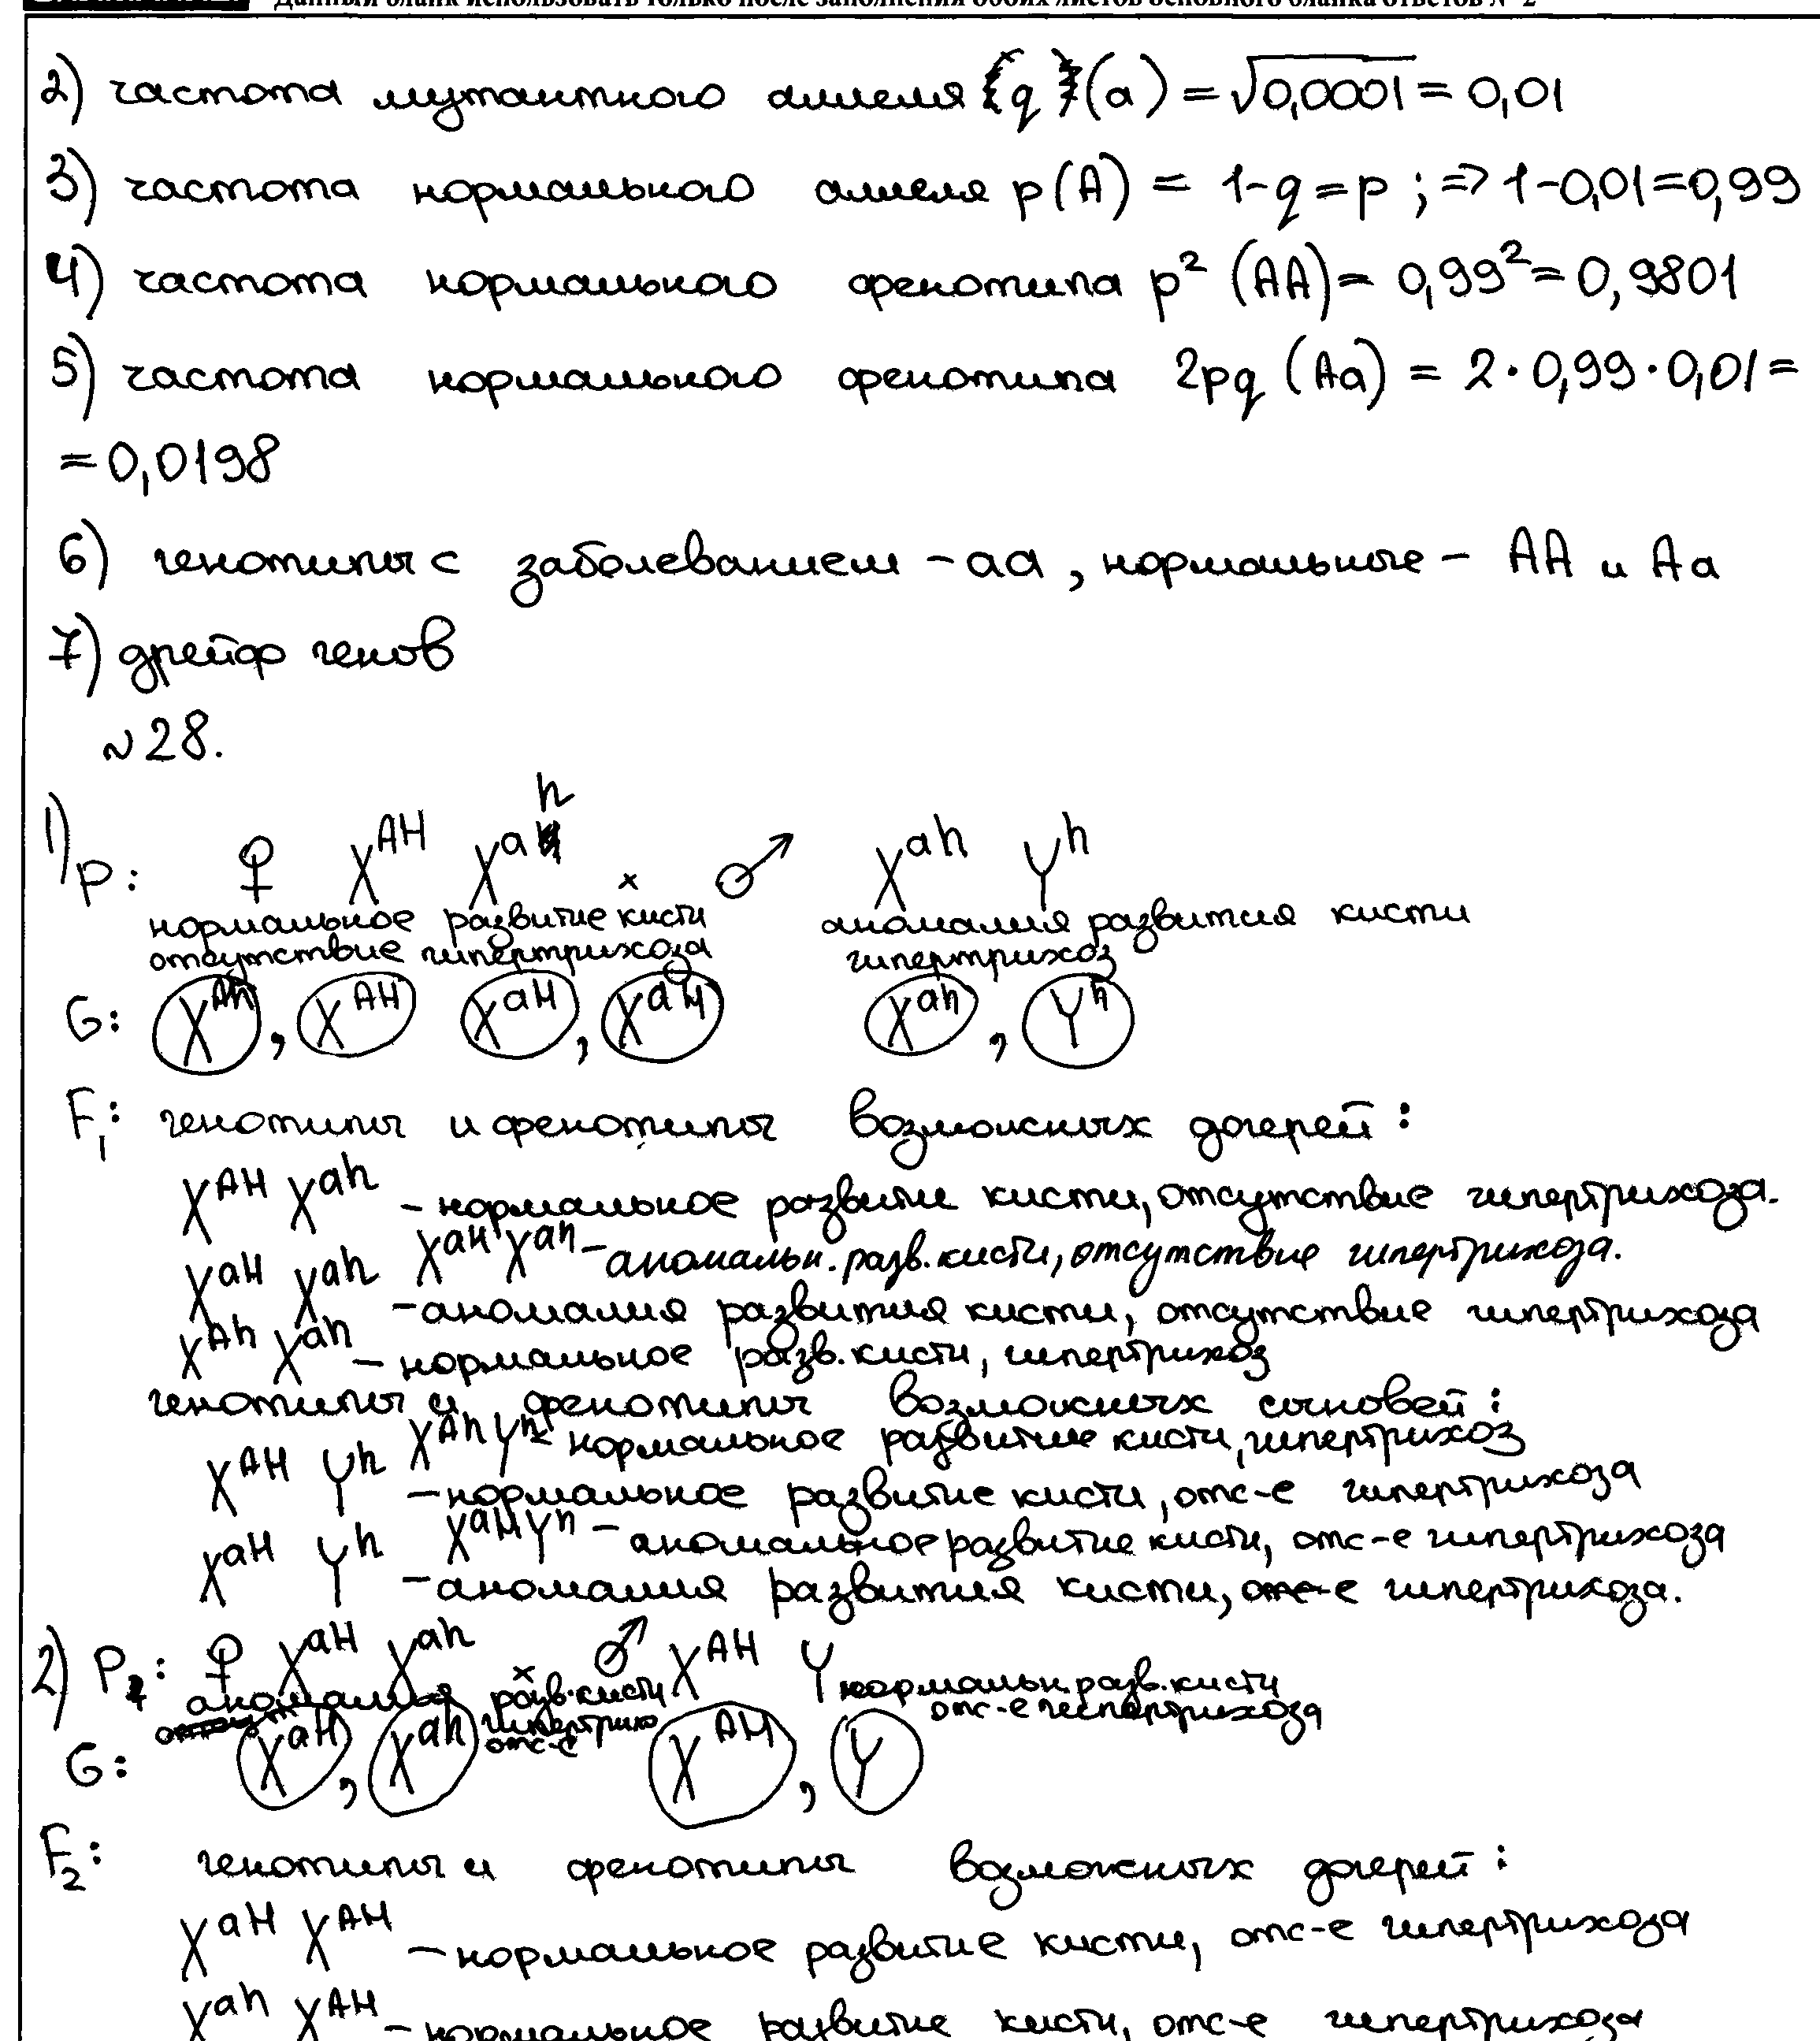 Данный бланк использовать только после заполнения обоих листов основного бланка ответов № 2
2) частота мутантного аллеля q (a) = √0,0001 = 0,01
3) частота нормального аллеля p(A) = 1-q=p ; => 1-0,01=0,99
4) частота нормального фенотипа p² (AA)= 0,99²=0,9801
5) частота нормального фенотипа 2pq (Aa) = 2·0,99·0,01=
=0,0198
6) генотипы с заболеванием - aa, нормальные - AA и Aa
7) дрейф генов
№28.
1) P: ♀ X^AH X^ah × ♂ X^ah Y^h
нормальное развитие кисти аномалия развития кисти
отсутствие гипертрихоза гипертрихоз
G: X^Ah, X^AH X^aH, X^aH X^ah, Y^h
F1: генотипы и фенотипы возможных дочерей:
X^AH X^ah - нормальное развитие кисти, отсутствие гипертрихоза.
X^aH X^ah - аномальн. разв. кисти, отсутствие гипертрихоза.
X^aH X^ah - аномалия развития кисти, отсутствие гипертрихоза
X^Ah X^ah - нормальное разв. кисти, гипертрихоз
генотипы и фенотипы возможных сыновей:
X^Ah Y^h - нормальное развитие кисти, гипертрихоз
X^AH Y^h - нормальное развитие кисти, отс-е гипертрихоза
X^aH Y^h - аномальное развитие кисти, отс-е гипертрихоза
X^aH Y^h - аномалия развития кисти, отс-е гипертрихоза.
2) P2: ♀ X^aH X^ah × ♂ X^AH Y
аномалия разв. кисти нормальн. разв. кисти
отс-е гипертрихо отс-е гипертрихоза
G: X^aH, X^ah X^AH, Y
F2: генотипы и фенотипы возможных дочерей:
X^aH X^AH - нормальное развитие кисти, отс-е гипертрихоза
X^ah X^AH - нормальное развитие кисти, отс-е гипертрихоза